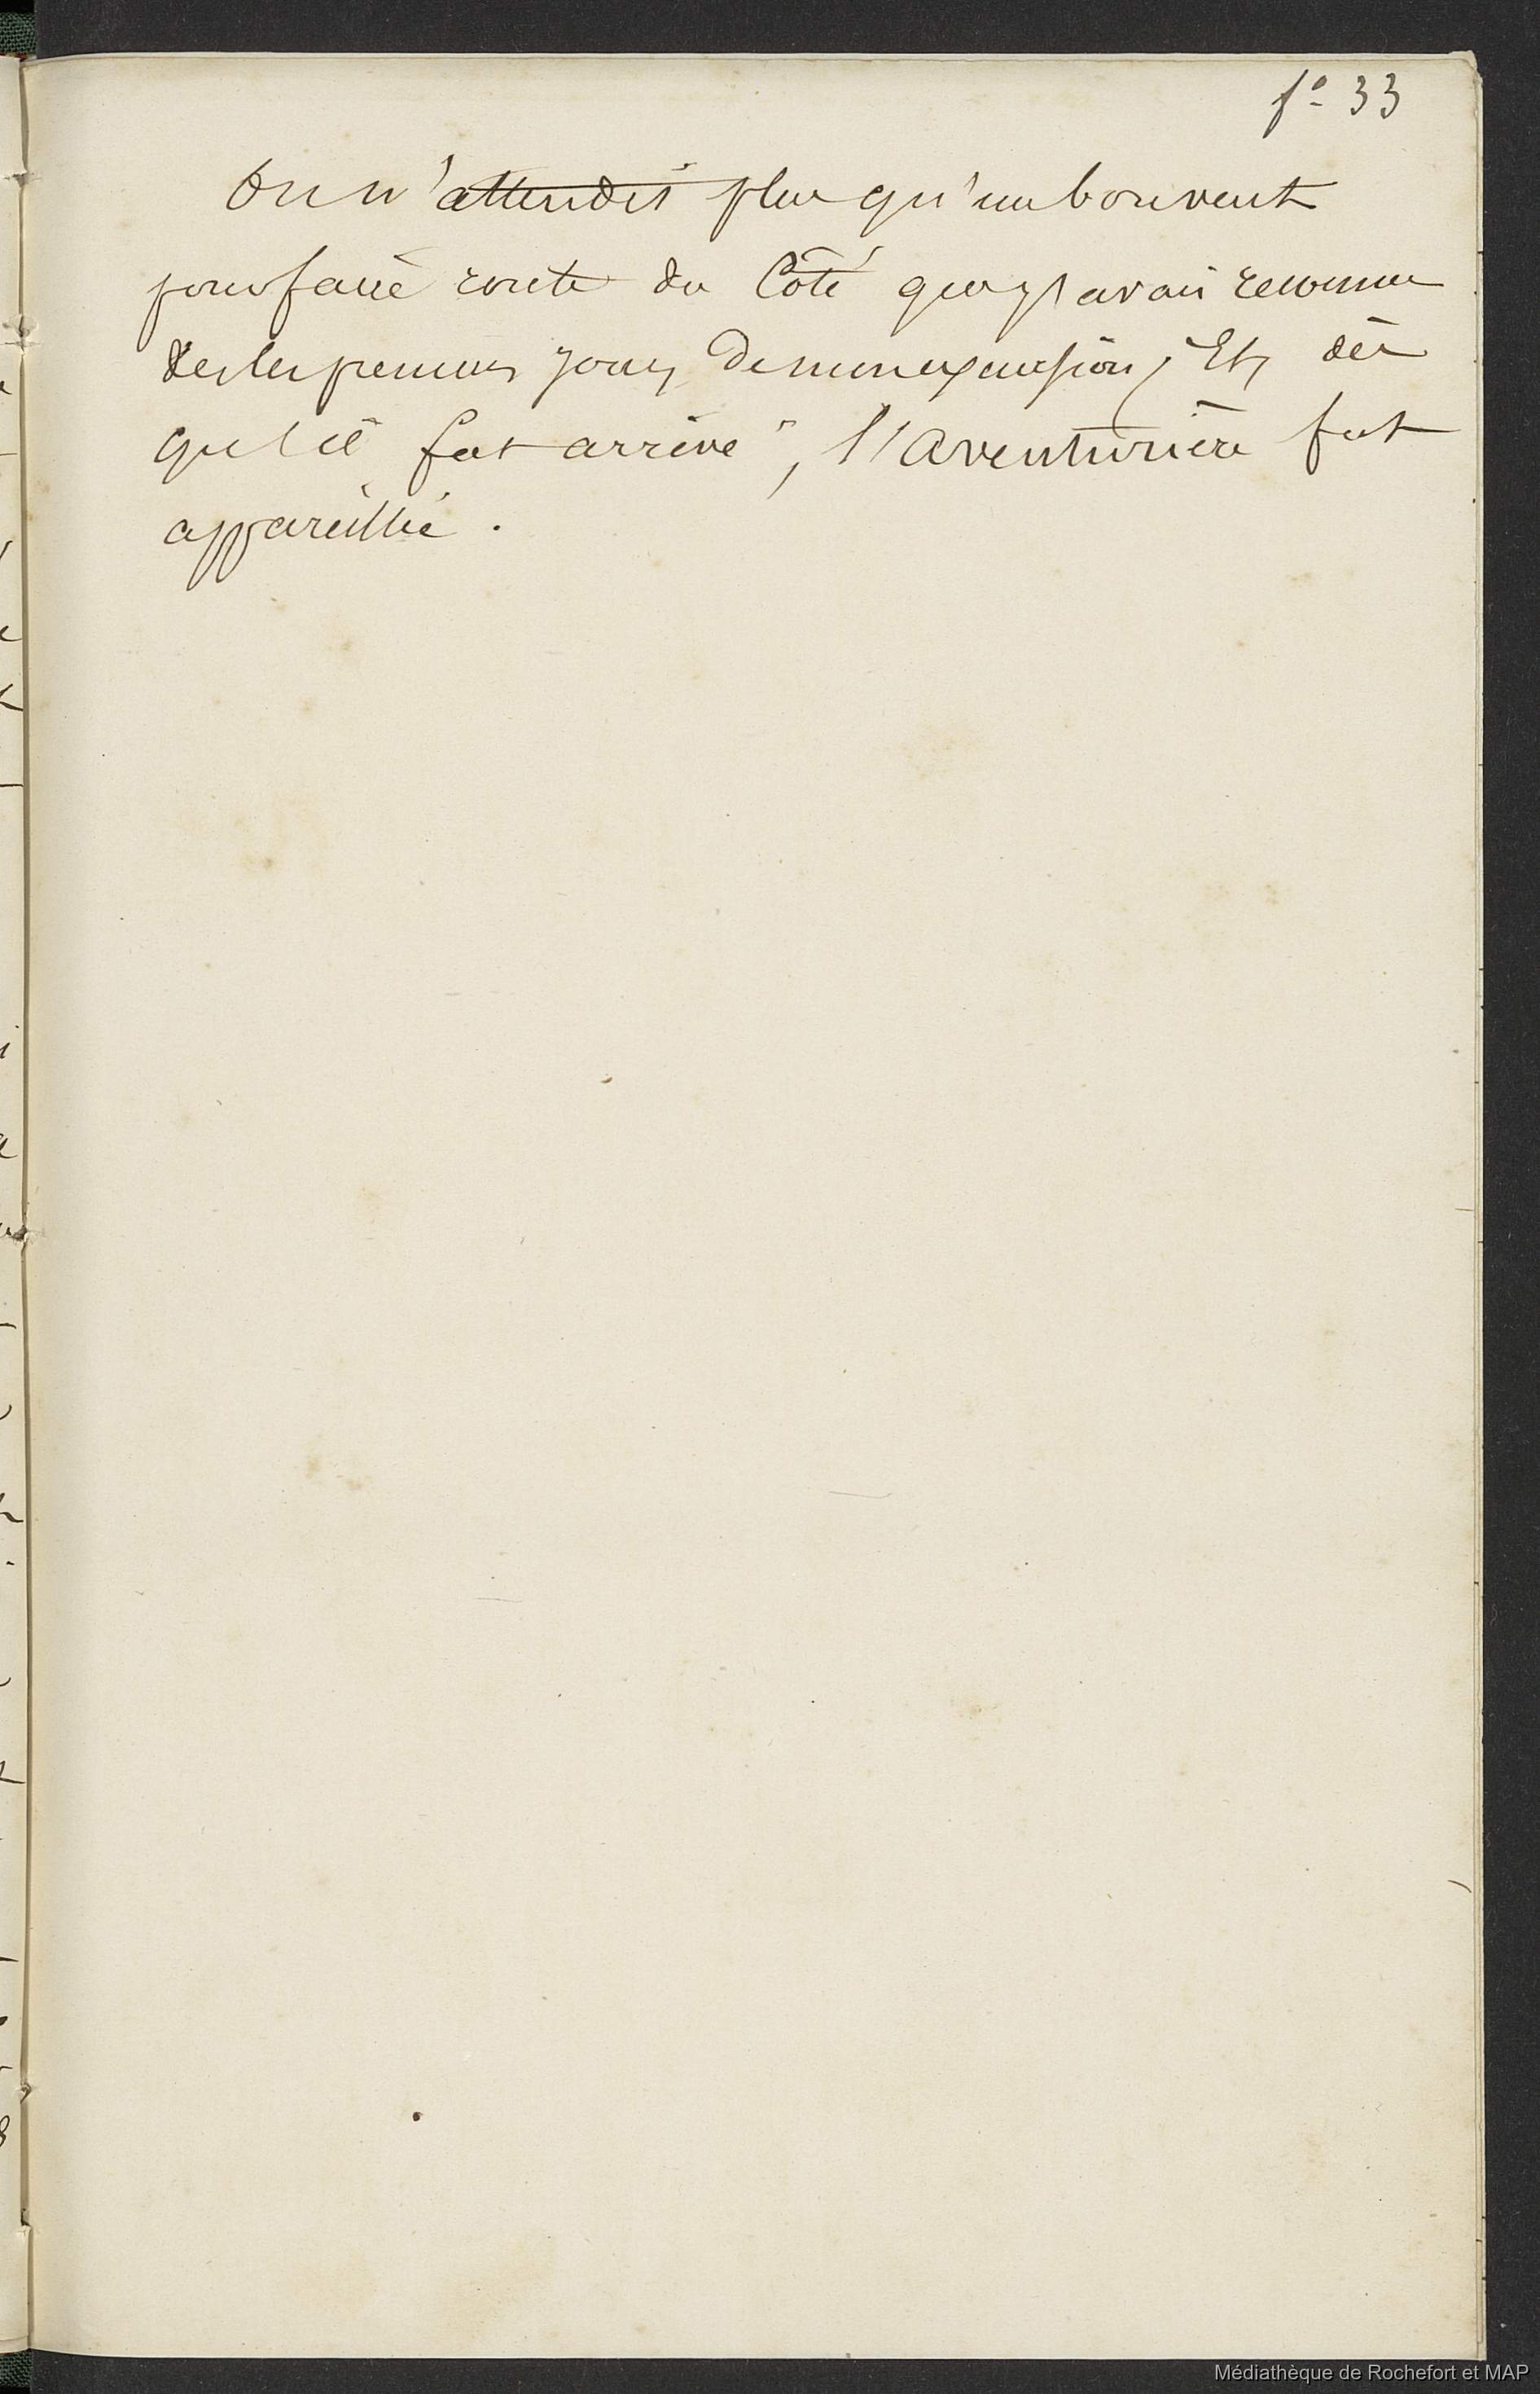 fº 33
On n'attendit plus qu'un bon vent
pour faire route du Côté que j'avais reconnu
des les premiers jours de mon excursion, Et, dès
qu'il fut arrivé, l'aventurière fut
appareillé.
Médiathèque de Rochefort et MAP